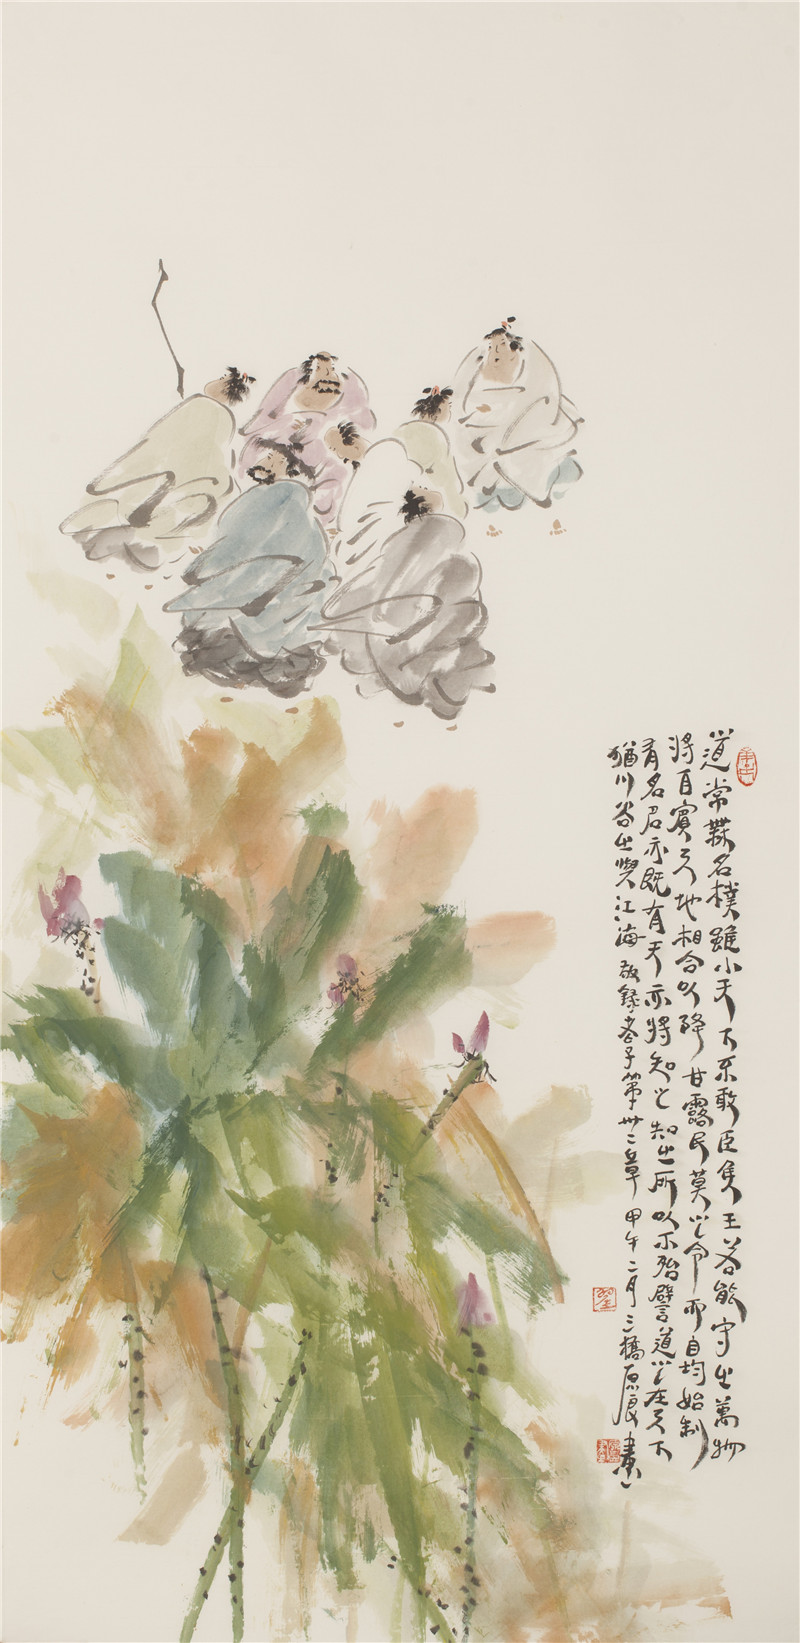 道常無名樸雖小天下不敢臣侯王若能守之萬物
將自賓天地相合以降甘露民莫之令而自均始制
有名名亦既有天亦將知止知止所以不殆譬道之在天下
猶川谷之與江海敬錄老子第卅二章甲午二月三橋原良畫